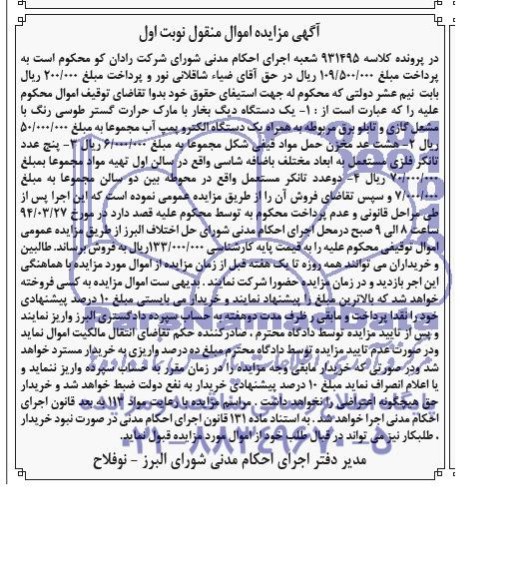 آگهی مزایده اموال منقول نوبت اول
در پرونده کلاسه ۹۳۱۴۹۵ شعبه اجرای احکام مدنی شورای شرکت رادان کو محکوم است به
پرداخت مبلغ ۱۰۹/۵۰۰/۰۰۰ ریال در حق آقای ضیاء شاقلانی نور و پرداخت مبلغ ۲۰۰/۰۰۰ ریال
بابت نیم عشر دولتی که محکوم له جهت استیفای حقوق خود بدوا تقاضای توقیف اموال محکوم
علیه را که عبارت است از : ۱- یک دستگاه دیگ بخار با مارک حرارت گستر طوسی رنگ با
مشعل گازی و تابلو برق مربوطه به همراه یک دستگاه الکترو پمپ آب مجموعا به مبلغ ۵۰/۰۰۰/۰۰۰
ریال ۲- هشت عد مخزن حمل مواد قیفی شکل مجموعا به مبلغ ۶/۰۰۰/۰۰۰ ریال ۳- پنج عدد
تانکر فلزی مستعمل به ابعاد مختلف باضافه شاسی واقع در سالن اول تهیه مواد مجموعا بمبلغ
۷۰/۰۰۰/۰۰۰ ریال ۴- دوعدد تانکر مستعمل واقع در محوطه بین دو سالن مجموعا به مبلغ
۷/۰۰۰/۰۰۰ و سپس تقاضای فروش آن را از طریق مزایده عمومی نموده است که این اجرا پس از
طی مراحل قانونی و عدم پرداخت محکوم به توسط محکوم علیه قصد دارد در مورخ ۹۴/۰۳/۲۷
ساعت ۸ الی ۹ صبح درمحل اجرای احکام مدنی شورای حل اختلاف البرز از طریق مزایده عمومی
اموال توقیفی محکوم علیه را به قیمت پایه کارشناسی ۱۳۳/۰۰۰/۰۰۰ریال به فروش برساند. طالبین
و خریداران می توانند همه روزه تا یک هفته قبل از زمان مزایده از اموال مورد مزایده با هماهنگی
این اجر بازدید و در زمان مزایده حضورا شرکت نمایند . بدیهی ست اموال مزایده به کسی فروخته
خواهد شد که بالاترین مبلغ را پیشنهاد نمایند و خریدار می بایستی مبلغ ۱۰ درصد پیشنهادی
خود را نقدا پرداخت و مابقی را ظرف مدت دوهفته به حساب سپرده دادگستری البرز واریز نمایند
و پس از تایید مزایده توسط دادگاه محترم ، صادرکننده حکم تقاضای انتقال مالکیت اموال نماید
ودر صورت عدم تایید مزایده توسط دادگاه محترم مبلغ ده درصد واریزی به خریدار مسترد خواهد
شد ودر صورتی که خریدار مابقی وجه مزایده را در زمان مقرر به حساب سپرده واریز ننماید و
یا اعلام انصراف نماید مبلغ ۱۰ درصد پیشنهادی خریدار به نفع دولت ضبط خواهد شد و خریدار
حق هیچگونه اعتراضی را نخواهد داشت . مراسم مزایده با رعایت مواد ۱۱۳ به بعد قانون اجرای
احکام مدنی اجرا خواهد شد . به استناد ماده ۱۳۱ قانون اجرای احکام مدنی در صورت نبود خریدار
، طلبکار نیز می تواند در قبال طلب خود از اموال مورد مزایده قبول نماید.
مدیر دفتر اجرای احکام مدنی شورای البرز - نوفلاح
۰۲۱-۸۸۳۴۹۶۷۰-۵